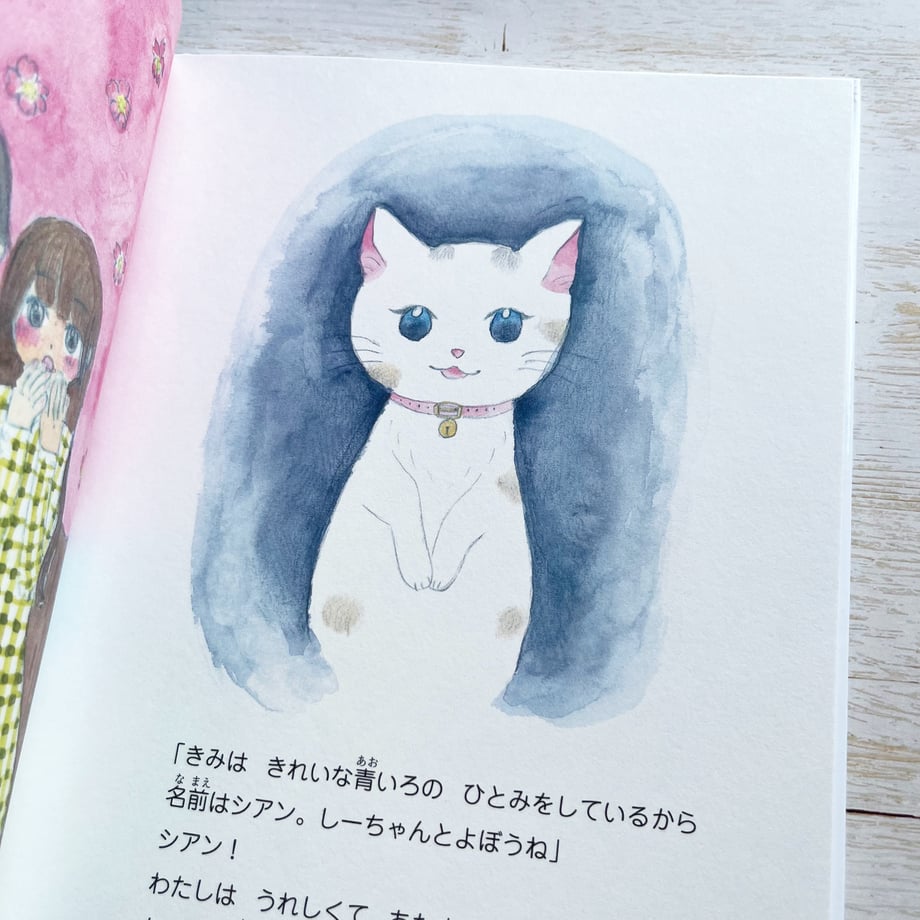 「きみは　きれいな青いろの　ひとみをしているから
名前はシアン。しーちゃんとよぼうね」
シアン！
わたしは　うれしくて